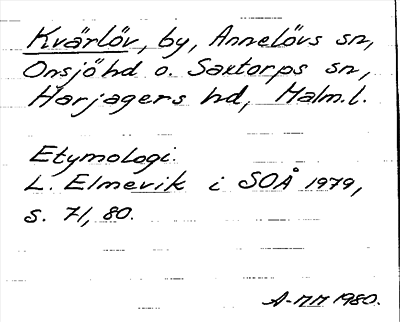 Kvärlöv, by, Annelövs sn,
Onsjöhd o. Saxtorps sn,
Harjagers hd, Malm.l.
Etymologi.
L. Elmevik i SOÅ 1979,
s. 71, 80.
A-MM 1980.